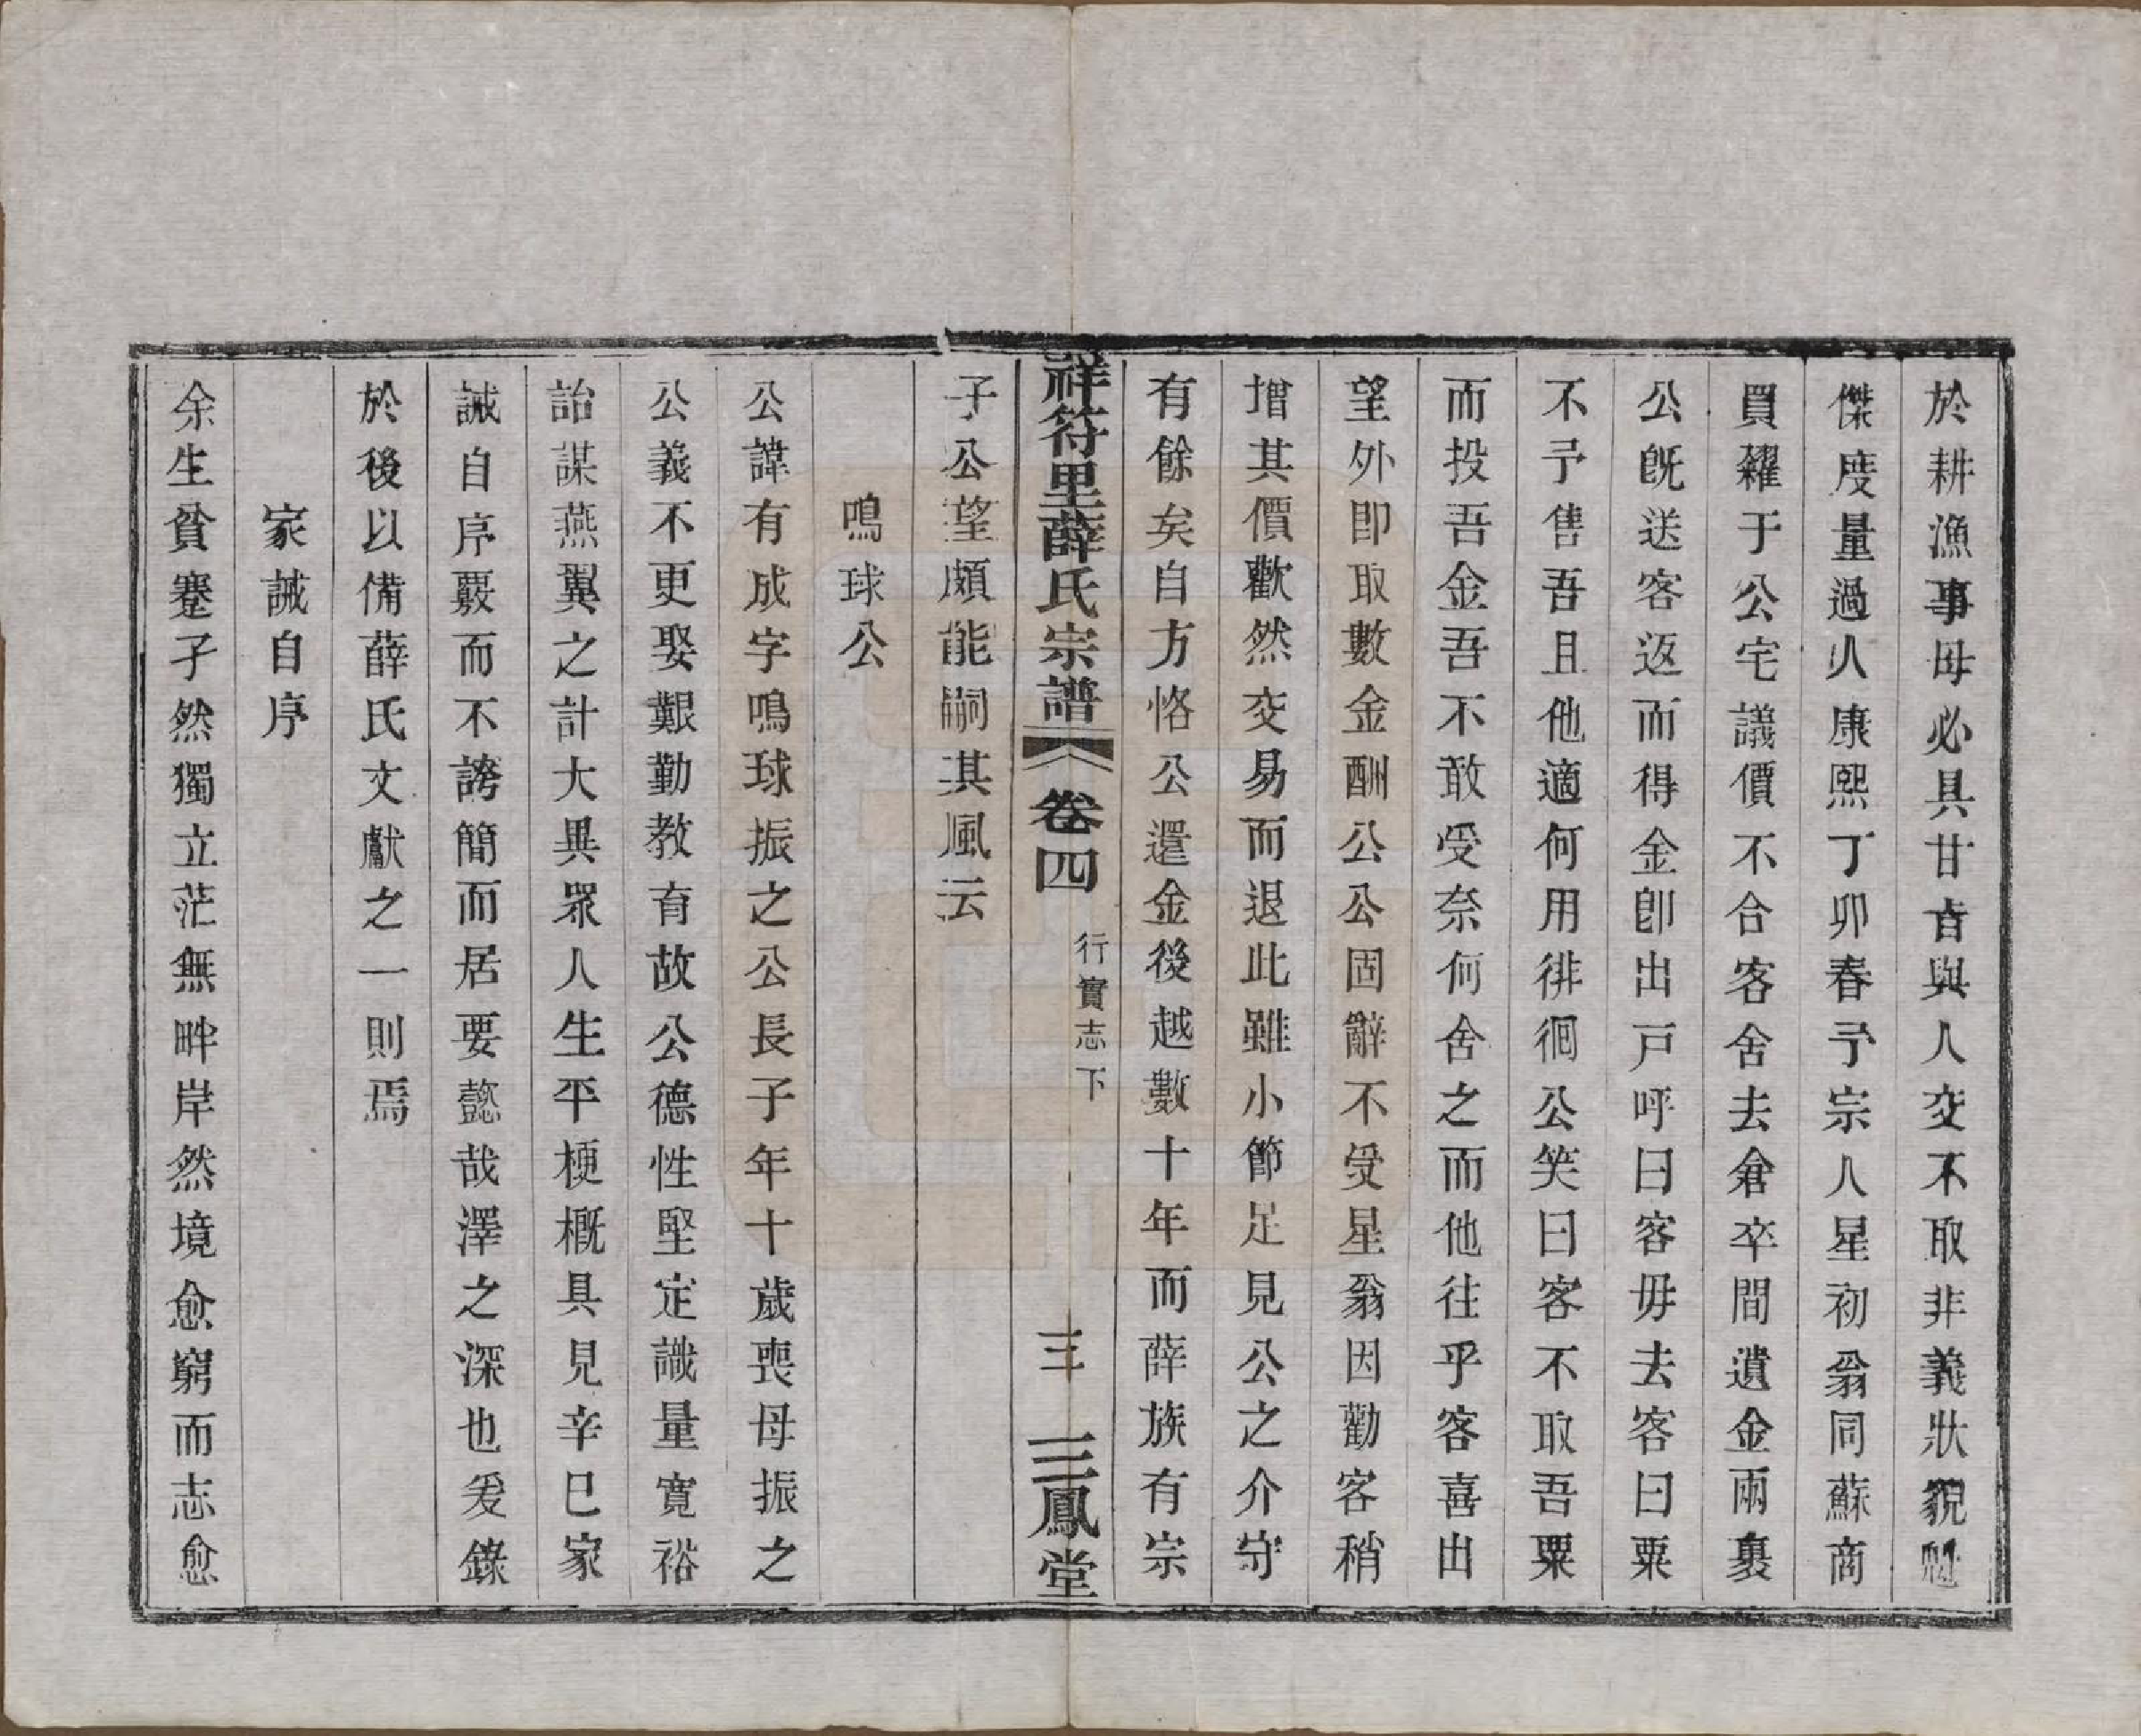 於耕漁事母必具甘旨與人交不取非義狀貌魁
傑度量過人康熙丁卯春予宗人星初翁同蘇商
買糴于公宅議價不合客舍去倉卒間遺金兩裹
公旣送客返而得金卽出戸呼曰客毋去客曰粟
不予售吾且他適何用徘徊公笑曰客不取吾粟
而投吾金吾不敢受奈何舍之而他往乎客喜出
望外卽取數金酬公公固辭不受星翁因勸客稍
增其價歡然交易而退此雖小節足見公之介守
有餘矣自方恪公還金後越數十年而薛族有宗
祥符里薛氏宗譜 卷四 行實志下 三 三鳳堂
子公望頗能嗣其風云
鳴球公
公諱有成字鳴球振之公長子年十歲喪母振之
公義不更娶艱勤教育故公德性堅定識量寛裕
詒謀燕翼之計大異眾人生平梗概具見辛巳家
誡自序覈而不誇簡而居要懿哉澤之深也爰錄
於後以備薛氏文獻之一則焉
家誡自序
余生貧蹇孑然獨立茫無畔岸然境愈窮而志愈